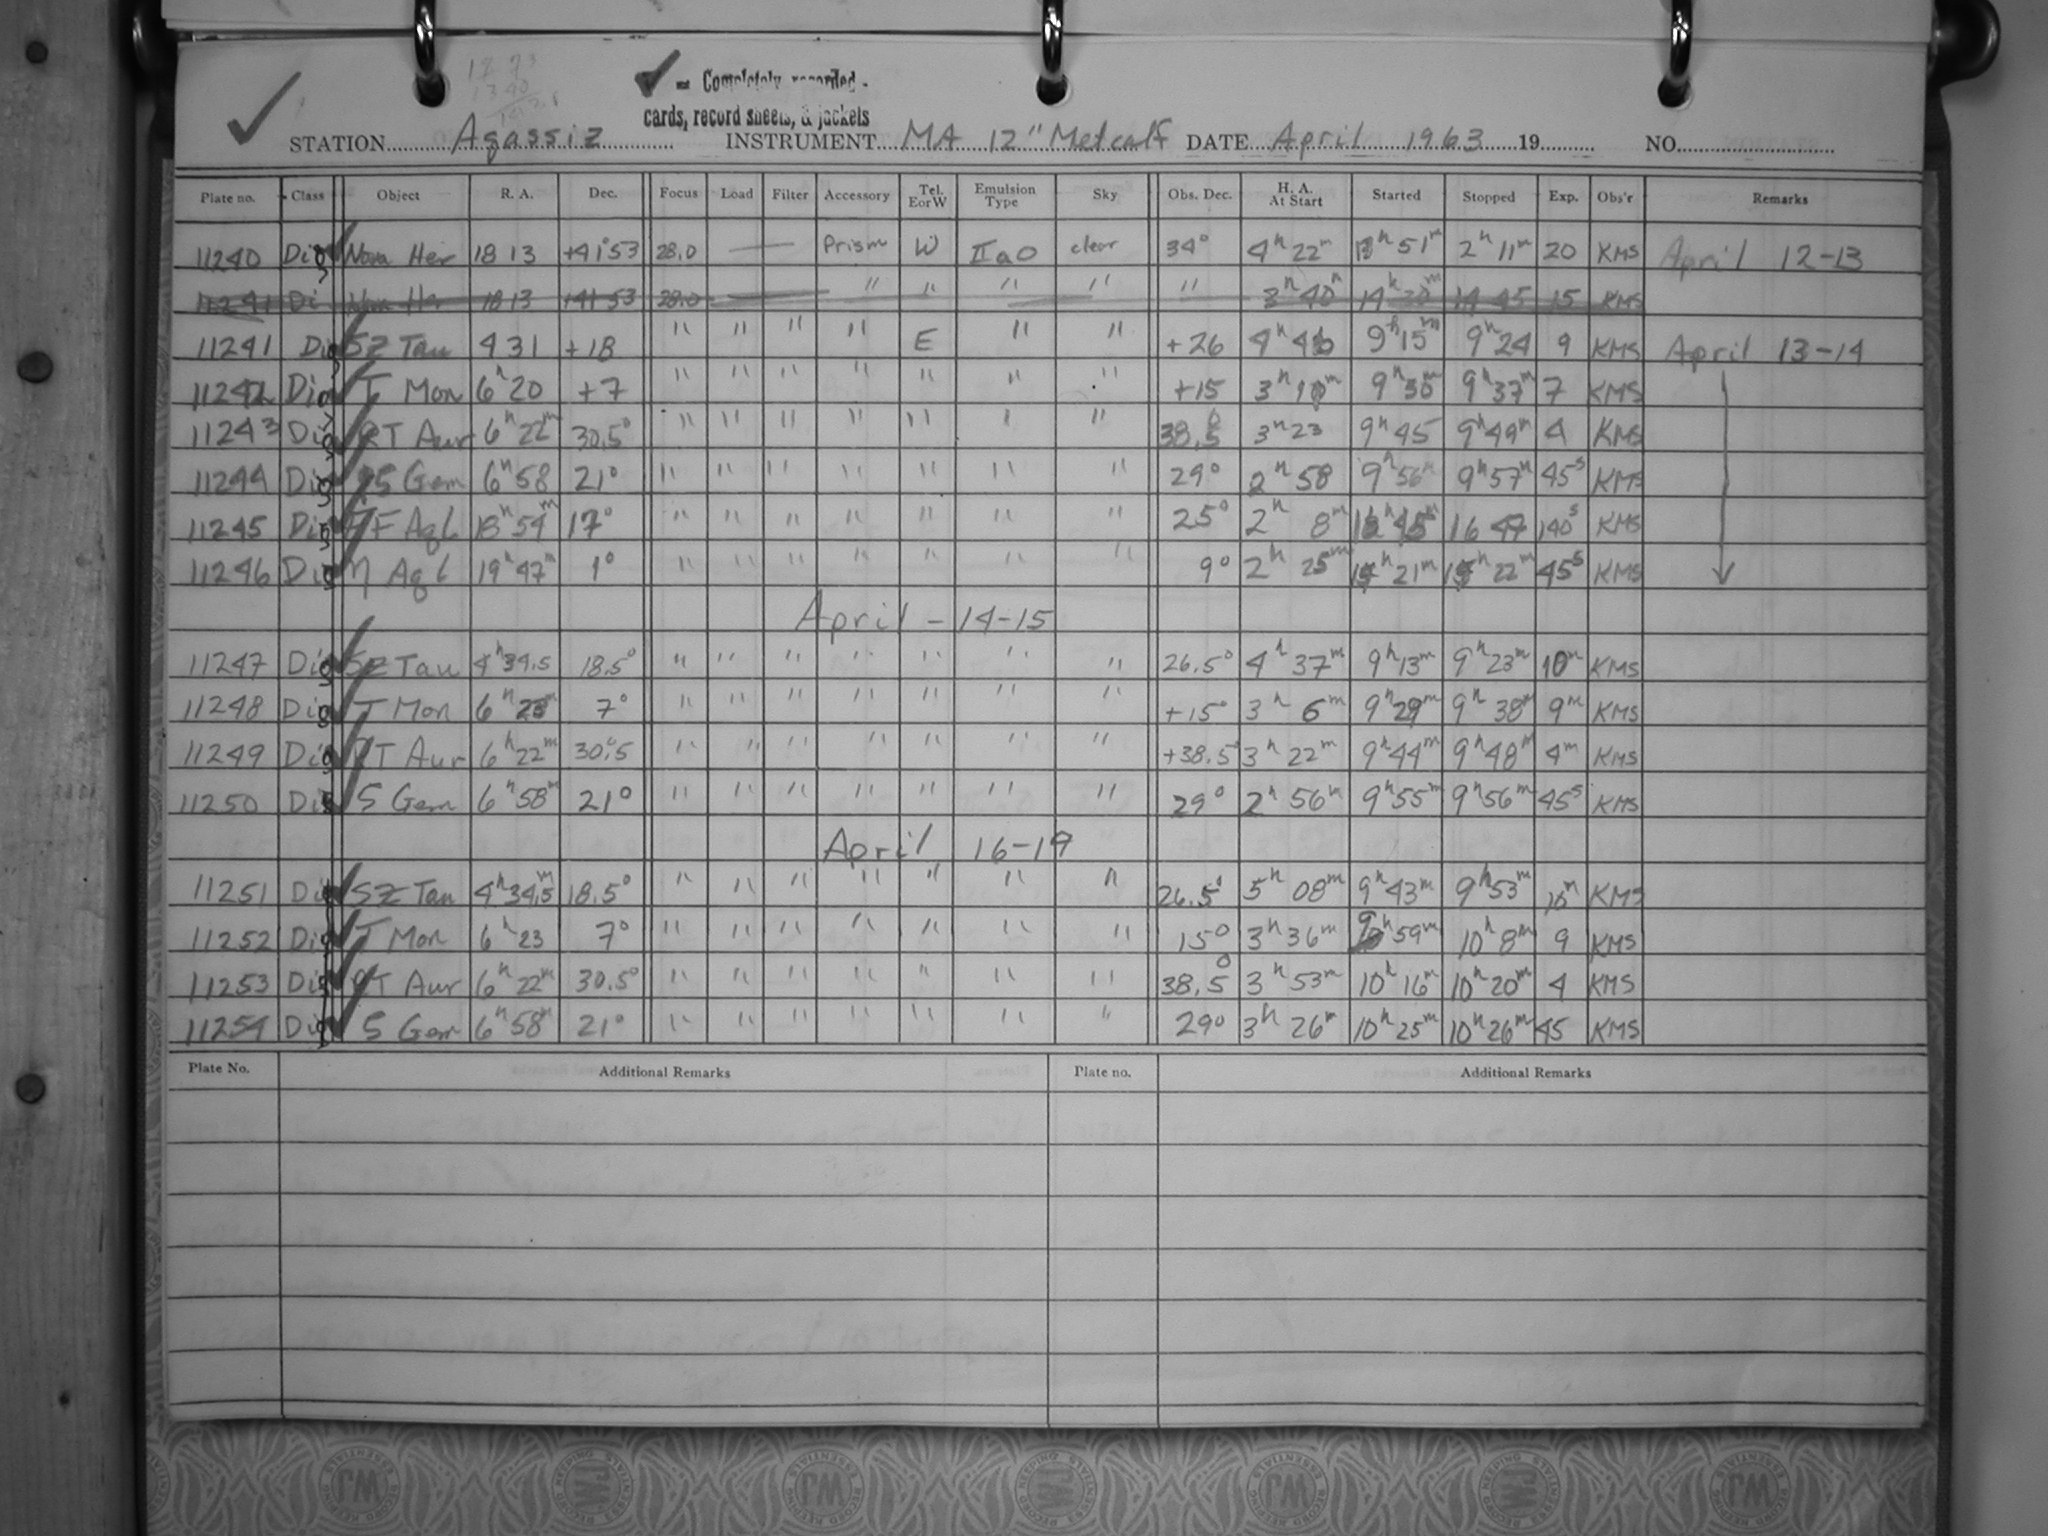 ✓ = Completely recorded -
cards, record sheets, & jackets
STATION Agassiz INSTRUMENT MA 12" Metcalf DATE April 1963 19 NO.
Plate no. Class Object R. A. Dec. Focus Load Filter Accessory Tel. EorW Emulsion Type Sky Obs. Dec. H. A. At Start Started Stopped Exp. Obs'r Remarks
11240 Nova Her 18 13 +41°53 28.0 — Prism W IIaO clear 34° 4h 22m 51m 2h 11m 20 KMS April 12-13
11241 Di Nova Her 18 13 +41 53 28.0 — " " " " " 3h 40m 14h 30m 14 45 15 KMS
11241 SZ Tau 4 31 +18 " " " " E " " +26 9h 15m 9h 24 9 KMS April 13-14
11242 T Mon 6h 20 +7 " " " " " " " +15 9h 30m 9h 37m 7 KMS
11243 RT Aur 6h 22m 30.5° " " " " " " " 38.5° 3h 23 9h 45 9h 49m 4 KMS
11244 Gem 6h 58 21° " " " " " " " 29° 2h 58 9h 56m 9h 57m 45s KMS
11245 FF Aql 18h 54m 17° " " " " " " " 25° 2h 8m 16 47 140s KMS
11246 η Aql 19h 47m 1° " " " " " " " 9° 2h 25m 21m 22m 45s KMS
April - 14-15
11247 SZ Tau 4h 34.5 18.5° " " " " " " " 26.5° 4h 37m 9h 13m 9h 23m 10m KMS
11248 T Mon 6h 23m 7° " " " " " " " +15° 3h 6m 9h 29m 9h 38m 9m KMS
11249 RT Aur 6h 22m 30°.5 " " " " " " " +38.5° 3h 22m 9h 44m 9h 48m 4m KMS
11250 S Gem 6h 58m 21° " " " " " " " 29° 2h 56m 9h 55m 9h 56m 45s KMS
April 16-19
11251 SZ Tau 4h 34.5m 18.5° " " " " " " " 26.5° 5h 08m 9h 43m 9h 53m 10m KMS
11252 T Mon 6h 23 7° " " " " " " " 15° 3h 36m 9h 59m 10h 8m 9 KMS
11253 RT Aur 6h 22m 30.5° " " " " " " " 38.5° 3h 53m 10h 16m 10h 20m 4 KMS
11254 S Gem 6h 58m 21° " " " " " " " 29° 3h 26m 10h 25m 10h 26m 45 KMS
Plate No. Additional Remarks Plate no. Additional Remarks